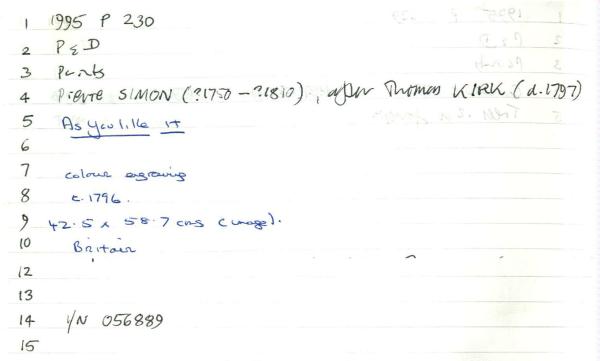 1 1995 P 230
2 P & D
3 Prints
4 Pierre SIMON (?1750 – ?1810), after Thomas KIRK (d.1797)
5 As you like it
6
7 colour engraving
8 c.1796.
9 42.5 x 58.7 cms (image).
10 Britain
12
13
14 Y/N 056889
15